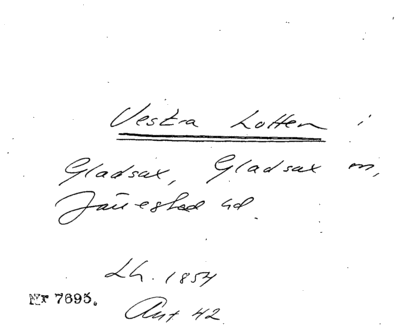 Vestra Lotten i
Gladsax, Gladsax m,
Järrestad hd.
Lh. 1854
Nr 7695.
Ant 42